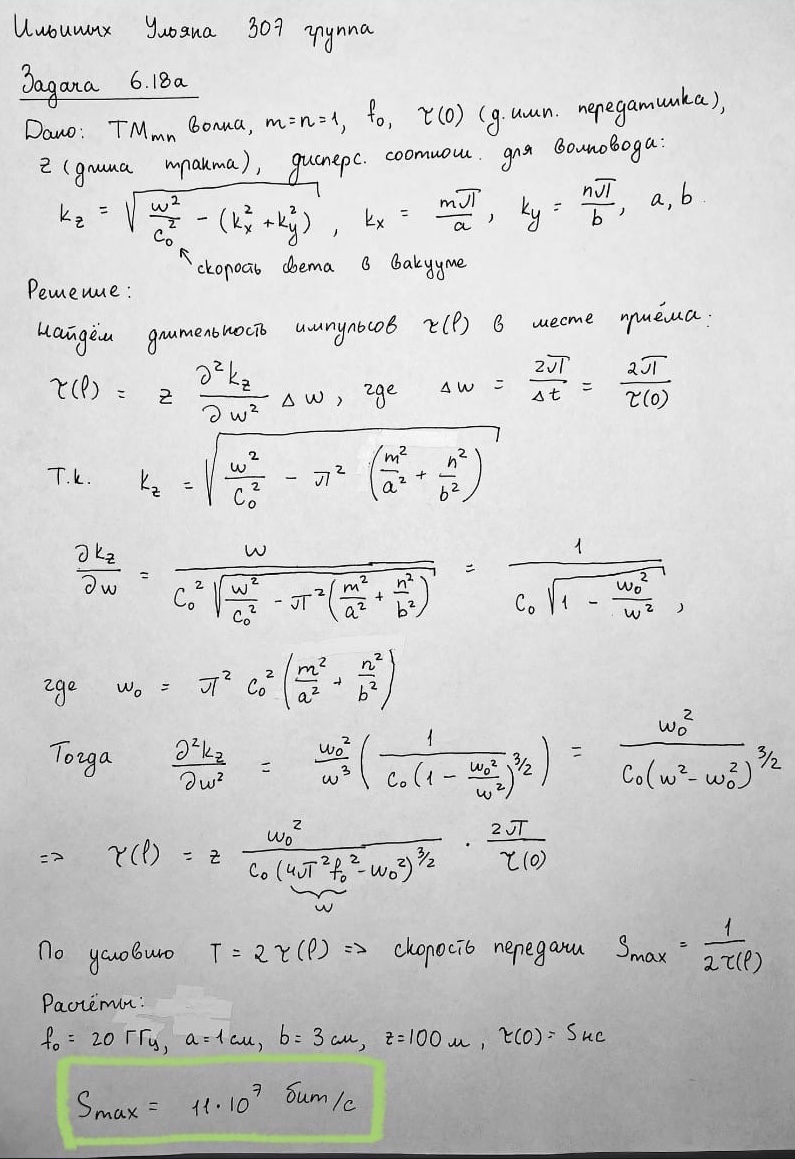 Ильиных Ульяна 307 группа
Задача 6.18а
Дано: TMmn волна, m=n=1, f₀, τ(0) (д. имп. передатчика),
z (длина тракта), дисперс. соотнош. для волновода:
k_z = √(w²/c₀² - (k_x² + k_y²)), k_x = mπ/a, k_y = nπ/b, a, b.
скорость света в вакууме
Решение:
Найдём длительность импульсов τ(l) в месте приёма:
τ(l) = z ∂²k_z/∂w² Δw, где Δw = 2π/Δt = 2π/τ(0)
Т.к. k_z = √(w²/c₀² - π² (m²/a² + n²/b²))
∂k_z/∂w = w/(c₀² √(w²/c₀² - π² (m²/a² + n²/b²))) = 1/(c₀ √(1 - w₀²/w²)),
где w₀ = π² c₀² (m²/a² + n²/b²)
Тогда ∂²k_z/∂w² = w₀²/w³ (1/(c₀ (1 - w₀²/w²)^3/2)) = w₀²/(c₀ (w² - w₀²)^3/2)
=> τ(l) = z w₀²/(c₀ (4π²f₀² - w₀²)^3/2) · 2π/τ(0)
w
По условию T = 2τ(l) => скорость передачи Smax = 1/(2τ(l))
Расчёты:
f₀ = 20 ГГц, a = 1 см, b = 3 см, z = 100 м, τ(0) = 5 нс
Smax = 11·10⁷ бит/с